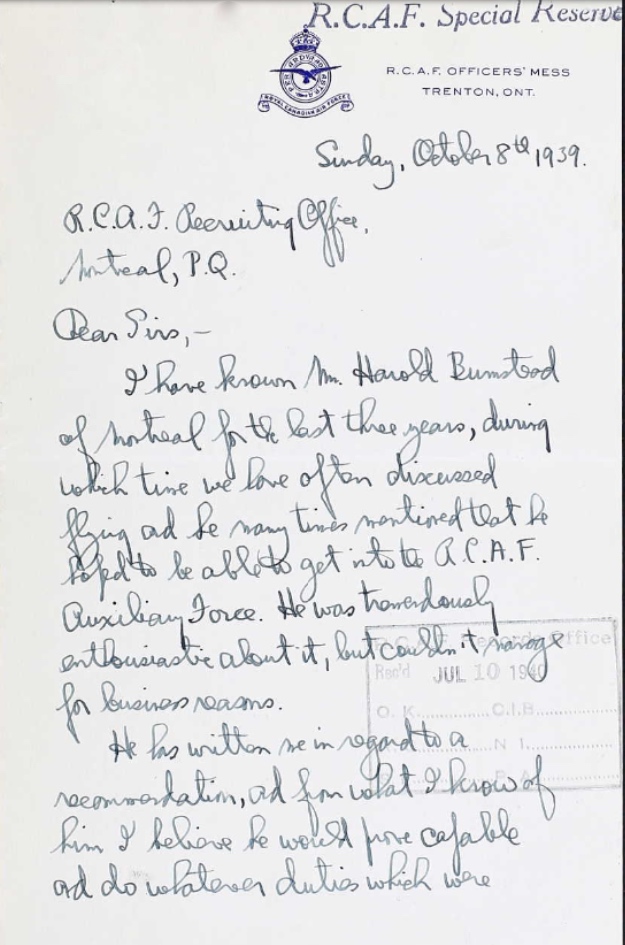 R.C.A.F. Special Reserve
PER ARDUA AD ASTRA
ROYAL CANADIAN AIR FORCE
R.C.A.F. OFFICERS' MESS
TRENTON, ONT.
Sunday, October 8th 1939.
R.C.A.F. Recruiting Office,
Montreal, P.Q.
Dear Sirs,-
I have known Mr. Harold Bumstead
of Montreal for the last three years, during
which time we have often discussed
flying and he many times mentioned that he
hoped to be able to get into the R.C.A.F.
Auxiliary Force. He was tremendously
enthusiastic about it, but couldn't manage
for business reasons.
R.C.A.F. Records Office
Rec'd JUL 10 1940
O. K. C.I.B.
N I
R. A.
He has written me in regard to a
recommendation, and from what I know of
him I believe he would prove capable
and do whatever duties which were